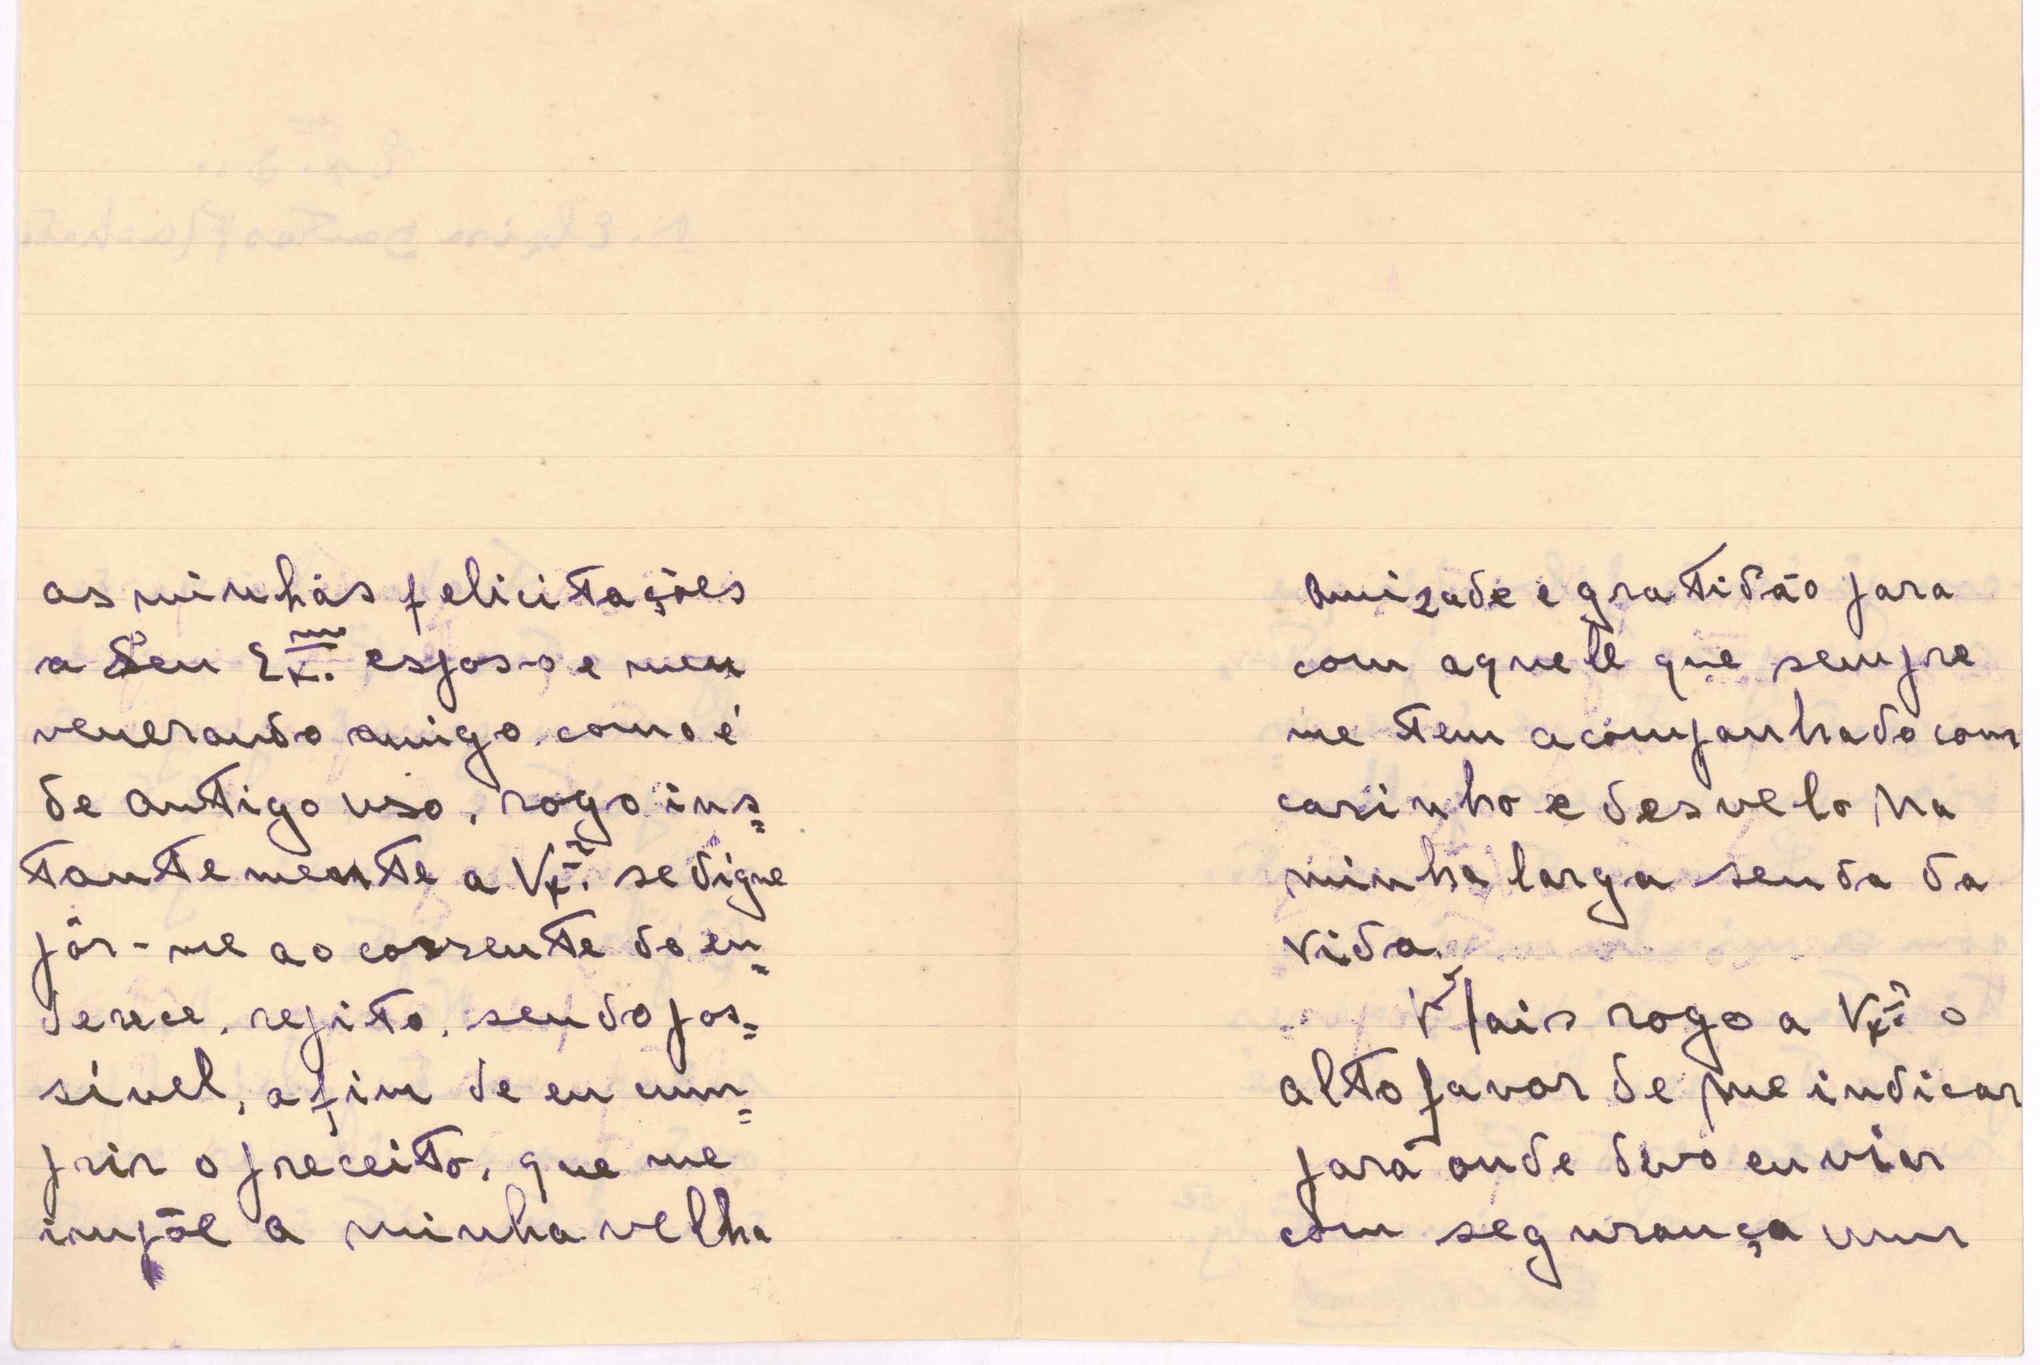 as minhas felicitações
a Seu Ex.mo esposo e meu
venerando amigo como é
de antigo uso, rogo ins=
tantemente a V.Ex.ª se digne
pôr-me ao corrente do en=
derece, repito, sendo pos=
sível, afim de eu cum=
prir o preceito, que me
impõe a minha velha
amizade e gratidão para
com aquele que sempre
me tem acompanhado com
carinho e desvelo na
minha larga senda da
vida.
Mais rogo a V.Ex.ª o
alto favor de me indicar
para onde devo enviar
com segurança um